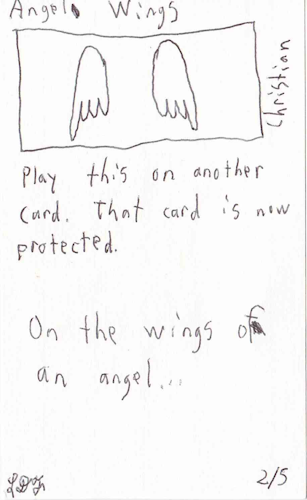 Angel Wings
Christian
Play this on another
card. That card is now
protected.
On the wings of
an angel...
2/5